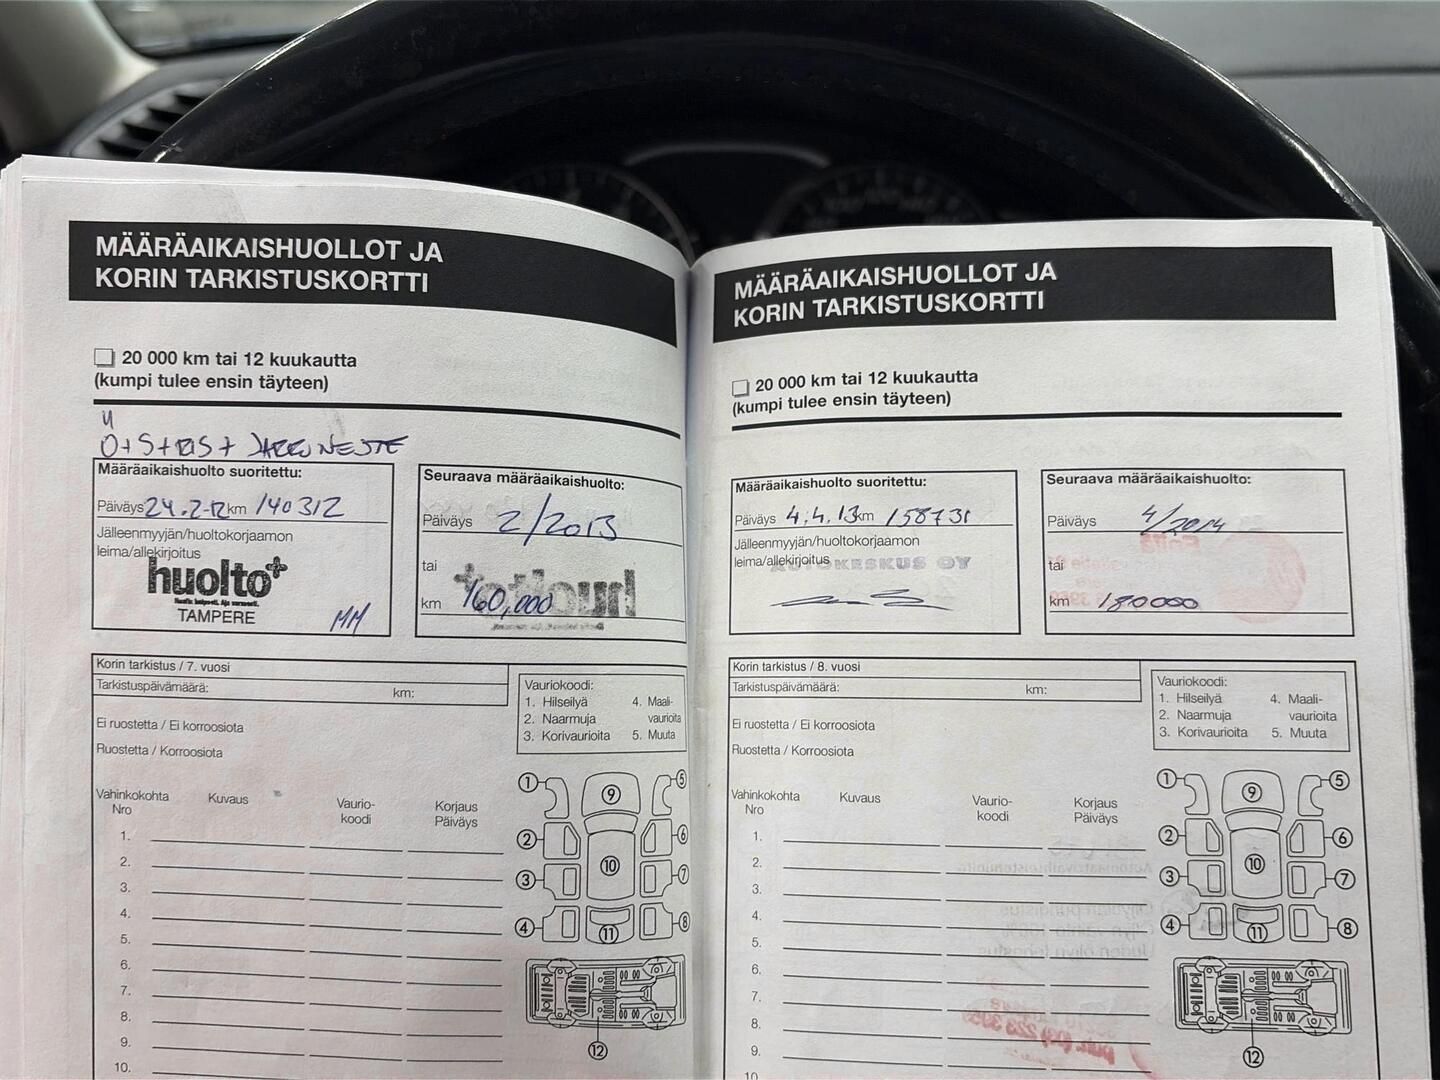 MÄÄRÄAIKAISHUOLLOT JA
KORIN TARKISTUSKORTTI
20 000 km tai 12 kuukautta
(kumpi tulee ensin täyteen)
Ö+S+RIS+ JARRUNESTE
Määräaikaishuolto suoritettu:
Päiväys 24.2-12 km 140312
Jälleenmyyjän/huoltokorjaamon
leima/allekirjoitus
huolto+
TAMPERE MM
Seuraava määräaikaishuolto:
Päiväys 2/2013
tai
km 160,000
Korin tarkistus / 7. vuosi
Tarkistuspäivämäärä: km:
Ei ruostetta / Ei korroosiota
Ruostetta / Korroosiota
Vauriokoodi:
1. Hilseilyä 4. Maali-
2. Naarmuja vaurioita
3. Korivaurioita 5. Muuta
Vahinkokohta Kuvaus Vaurio- Korjaus
Nro koodi Päiväys
1.
2.
3.
4.
5.
6.
7.
8.
9.
10.
1 5
9
2 6
10
3 7
4 8
11
12
MÄÄRÄAIKAISHUOLLOT JA
KORIN TARKISTUSKORTTI
20 000 km tai 12 kuukautta
(kumpi tulee ensin täyteen)
Määräaikaishuolto suoritettu:
Päiväys 4.4.13 km 158731
Jälleenmyyjän/huoltokorjaamon
leima/allekirjoitus
AUTOKESKUS OY
Seuraava määräaikaishuolto:
Päiväys 4/2014
tai
km 180000
Korin tarkistus / 8. vuosi
Tarkistuspäivämäärä: km:
Ei ruostetta / Ei korroosiota
Ruostetta / Korroosiota
Vauriokoodi:
1. Hilseilyä 4. Maali-
2. Naarmuja vaurioita
3. Korivaurioita 5. Muuta
Vahinkokohta Kuvaus Vaurio- Korjaus
Nro koodi Päiväys
1.
2.
3.
4.
5.
6.
7.
8.
9.
10
1 5
9
2 6
10
3 7
4 8
11
12